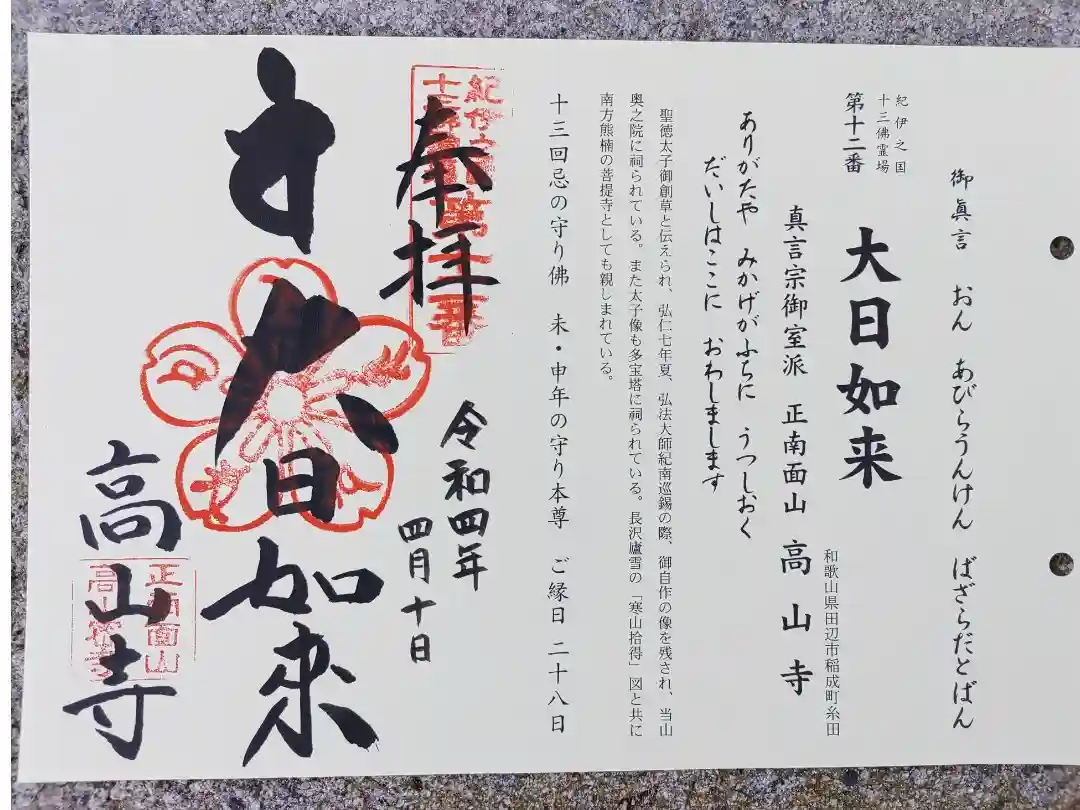 御眞言　おん　あびらうんけん　ばざらだとばん
紀伊之国
十三佛霊場
第十二番
大日如来
和歌山県田辺市稲成町糸田
真言宗御室派　正南面山　高山寺
ありがたや　みかげがふちに　うつしおく
だいしはここに　おわしまします
聖徳太子御創草と伝えられ、弘仁七年夏、弘法大師紀南巡錫の際、御自作の像を残され、当山
奥之院に祠られている。また太子像も多宝塔に祠られている。長沢廬雪の「寒山拾得」図と共に
南方熊楠の菩提寺としても親しまれている。
十三回忌の守り佛　未・申年の守り本尊　ご縁日 二十八日
奉拝
令和四年
四月十日
大日如来
高山寺
正南面山